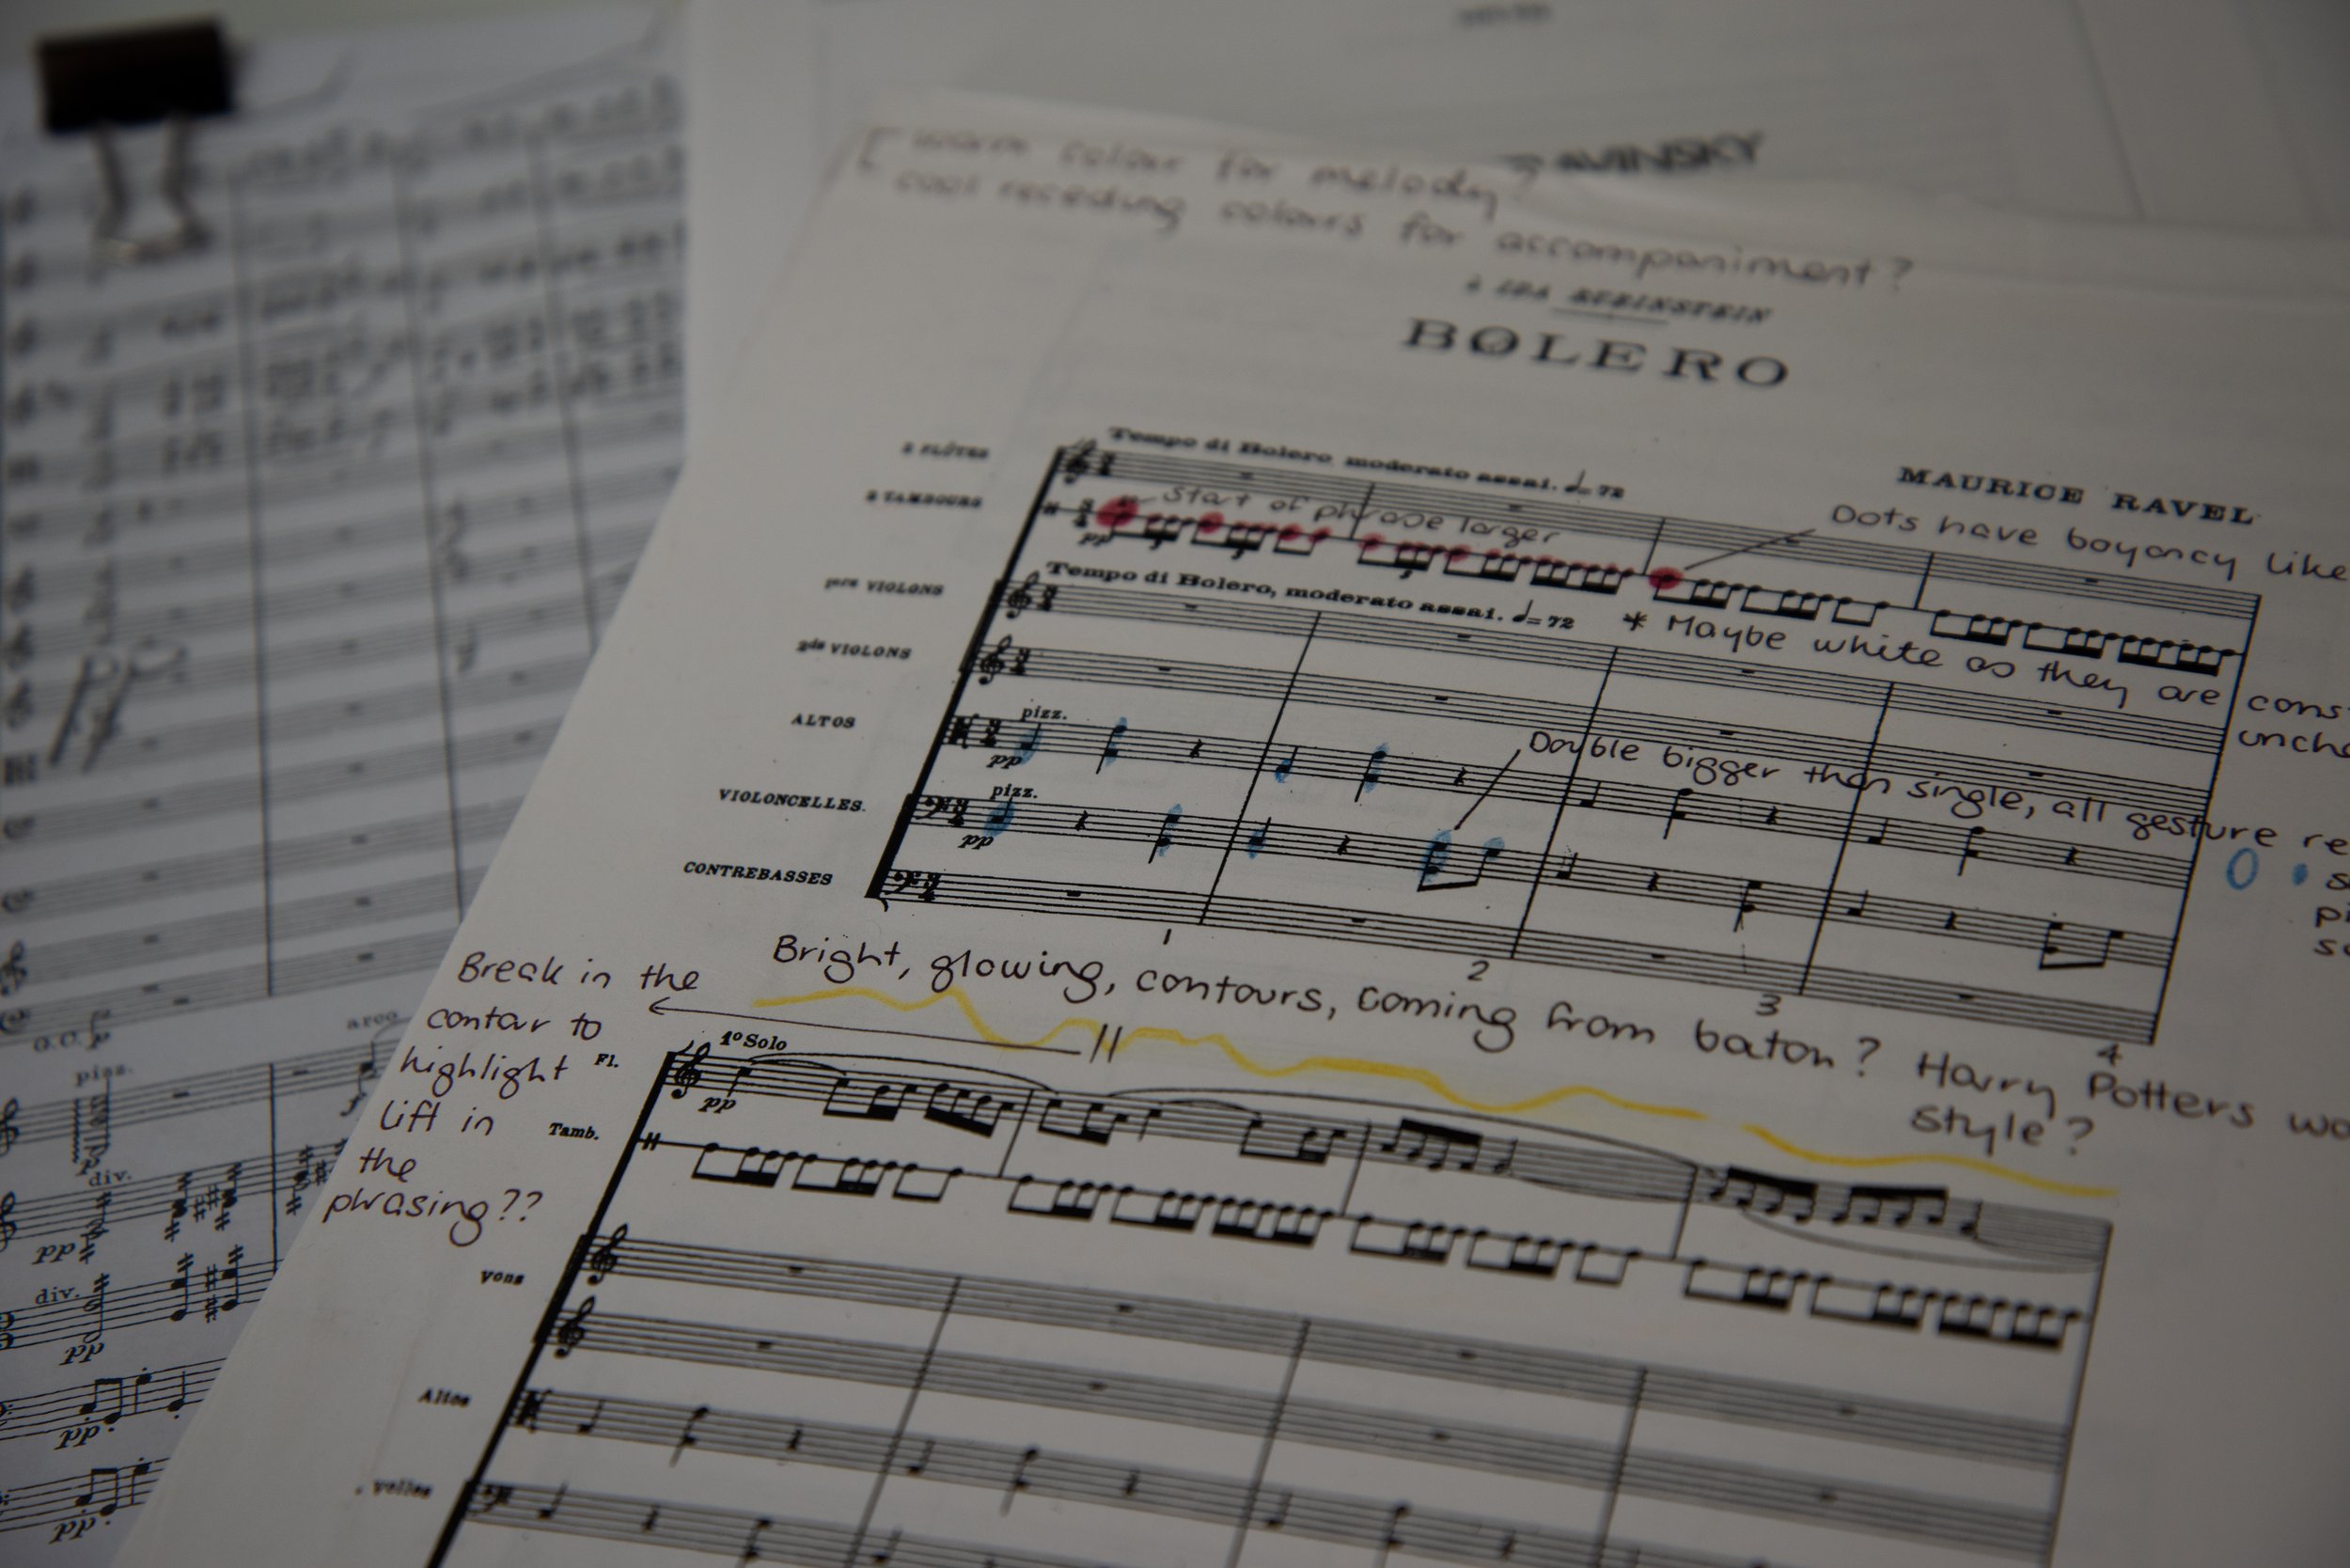 AVINSKY
warm colour for melody?
cool receding colours for accompaniment?
à IDA RUBINSTEIN
BOLERO
MAURICE RAVEL
Tempo di Bolero moderato assai. ♩=72
2 FLÛTES
2 TAMBOURS
start of phrase larger
pp
Dots have boyancy like
Tempo di Bolero, moderato assai. ♩=72
1ers VIOLONS
* Maybe white as they are
2ds VIOLONS
ALTOS
pizz.
pp
Double bigger then single, all gesture
VIOLONCELLES.
pizz.
pp
CONTREBASSES
1 2 3 4
Bright, glowing, contours, coming from baton? Harry Potters
style?
Break in the
contour to
highlight
lift in
the
phrasing??
1º Solo
Fl.
pp
Tamb.
Vons
Altos
Velles
arco
pizz.
div.
pp
div.
pp
pp
pp